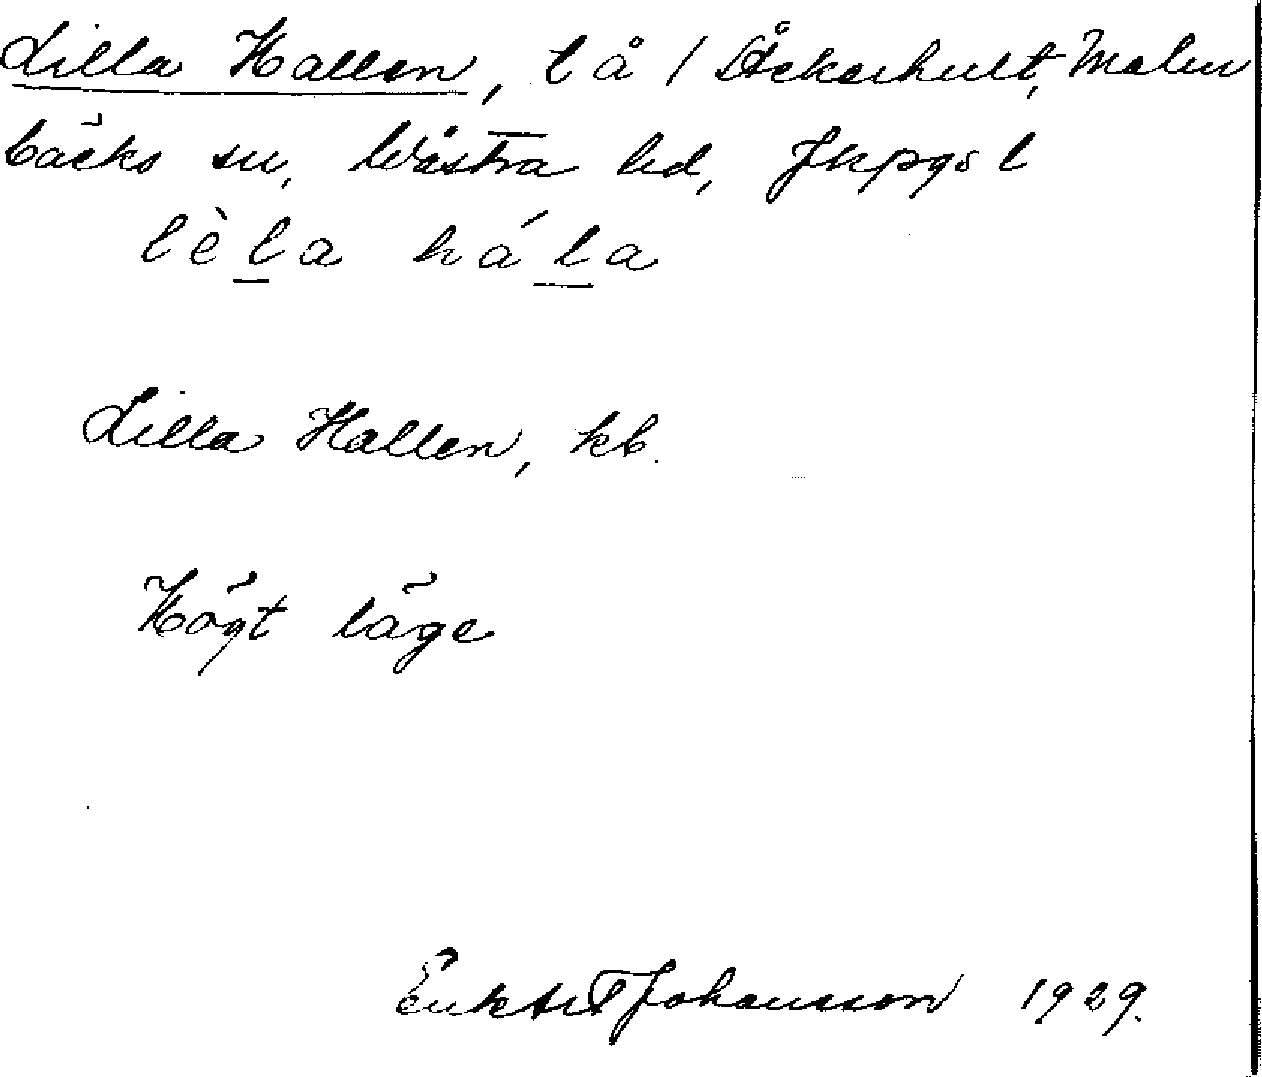 Lilla Hallen, lå / Åckarhult, Malm
bäcks sn, Västra hd, Jkpgs l
lèla hála
Lilla Hallen, kb.
Högt läge
Johansson 1929.